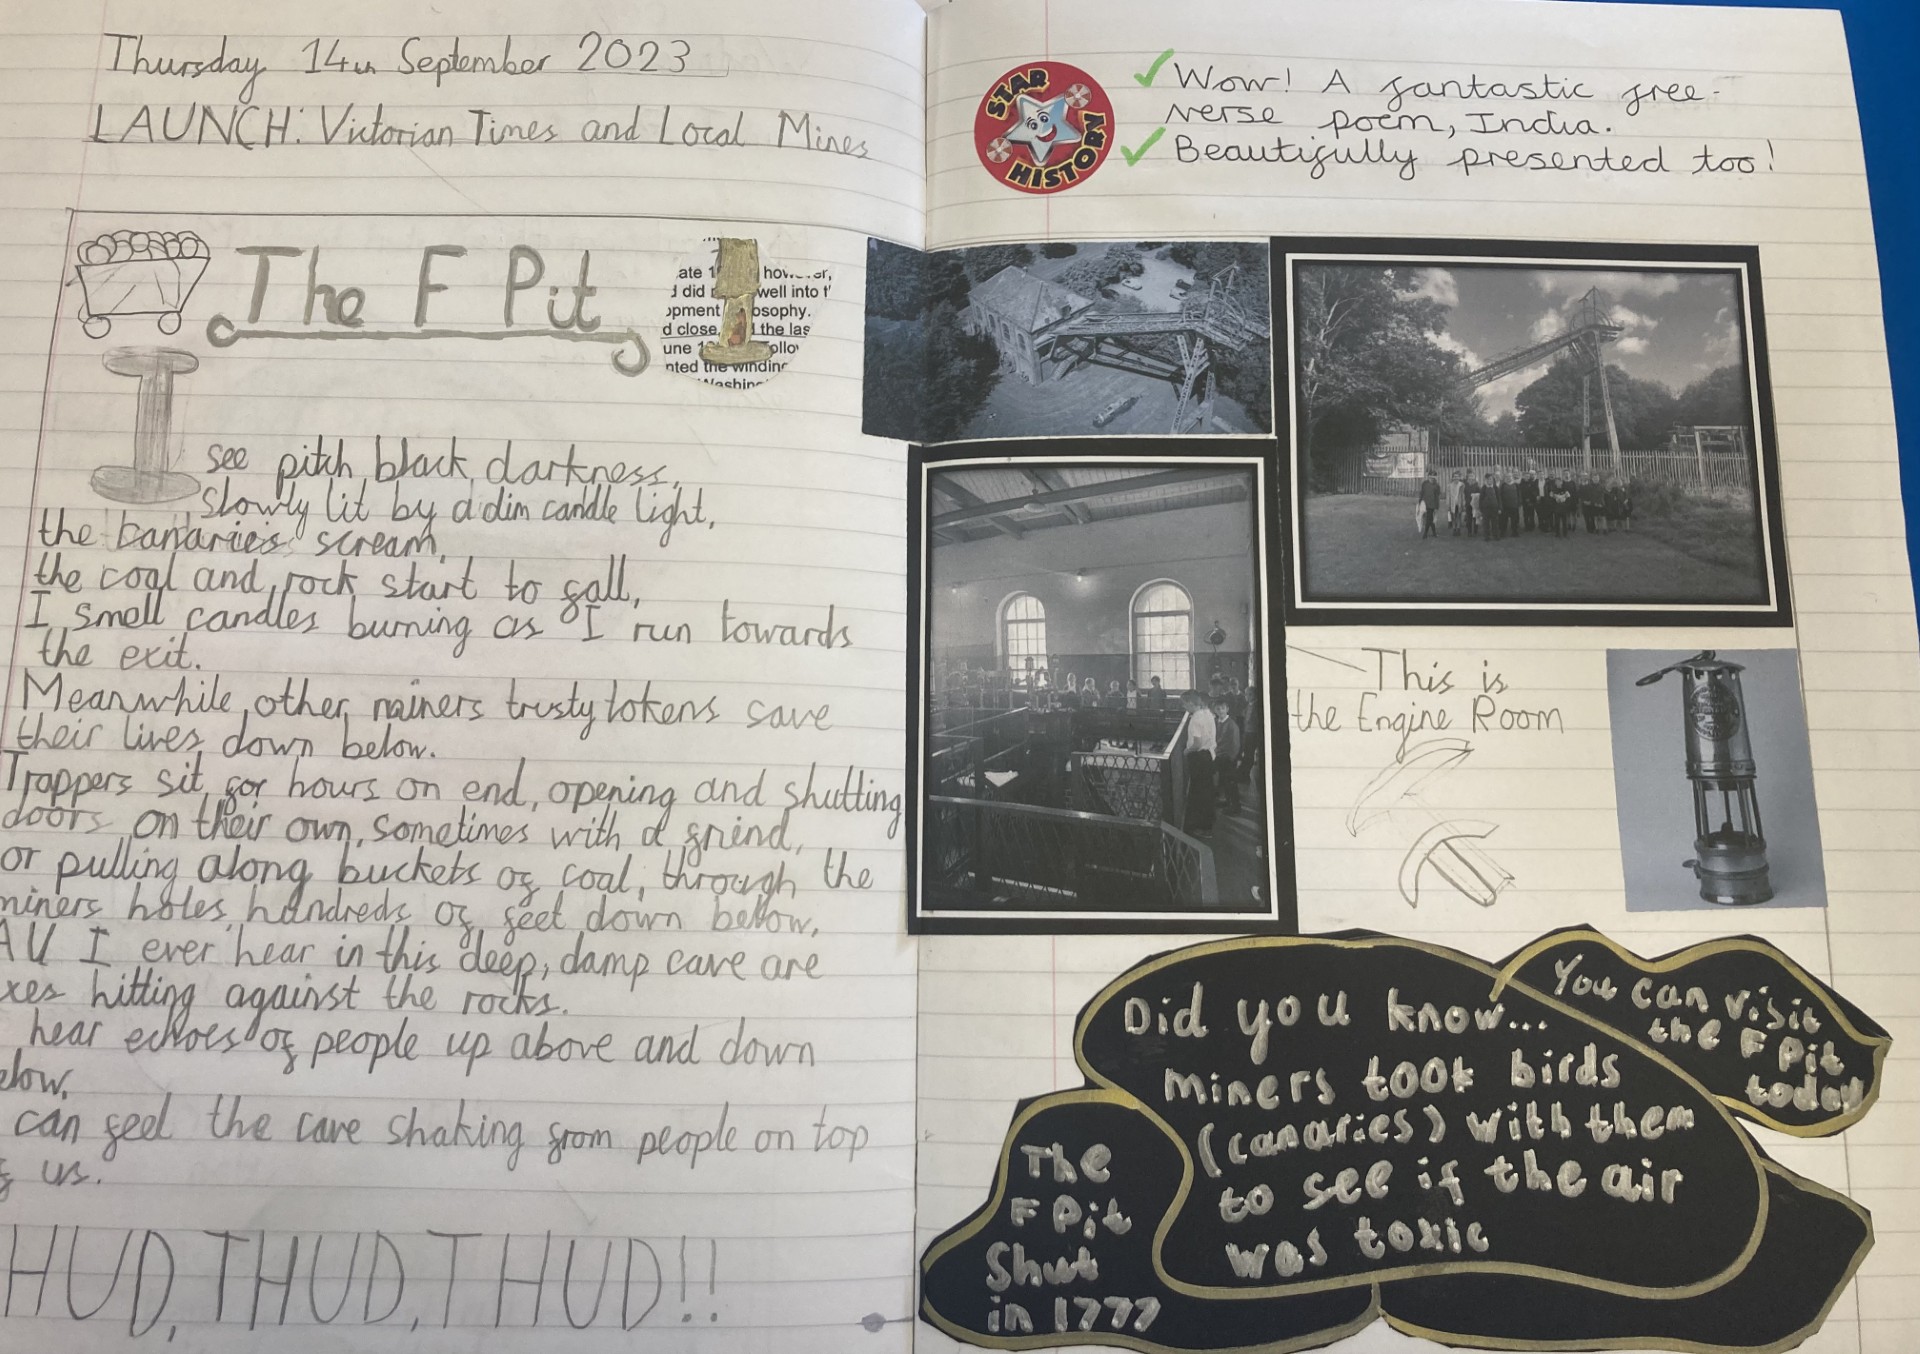 Thursday 14th September 2023
LAUNCH: Victorian Times and Local Mines
The F Pit
I
see pitch black darkness,
slowly lit by a dim candle light,
the canaries scream,
the coal and rock start to fall,
I smell candles burning as I run towards
the exit.
Meanwhile, other miners trusty tokens save
their lives down below.
Trappers sit for hours on end, opening and shutting
doors on their own, sometimes with a friend,
or pulling along buckets of coal, through the
miners holes, hundreds of feet down below,
All I ever hear in this deep, damp cave are
xes hitting against the rocks.
hear echoes of people up above and down
elow,
can feel the cave shaking from people on top
f us.
HUD, THUD, THUD!!
ate 1 how
did well into t
opment osophy.
d close, the las
une 1 ollow
nted the winding
Washin
STAR HISTORY
Wow! A fantastic free-
verse poem, India.
Beautifully presented too!
This is
the Engine Room
Did you know...
miners took birds
(canaries) with them
to see if the air
was toxic
You can visit
the F Pit
today
The
F Pit
Shut
in 1777